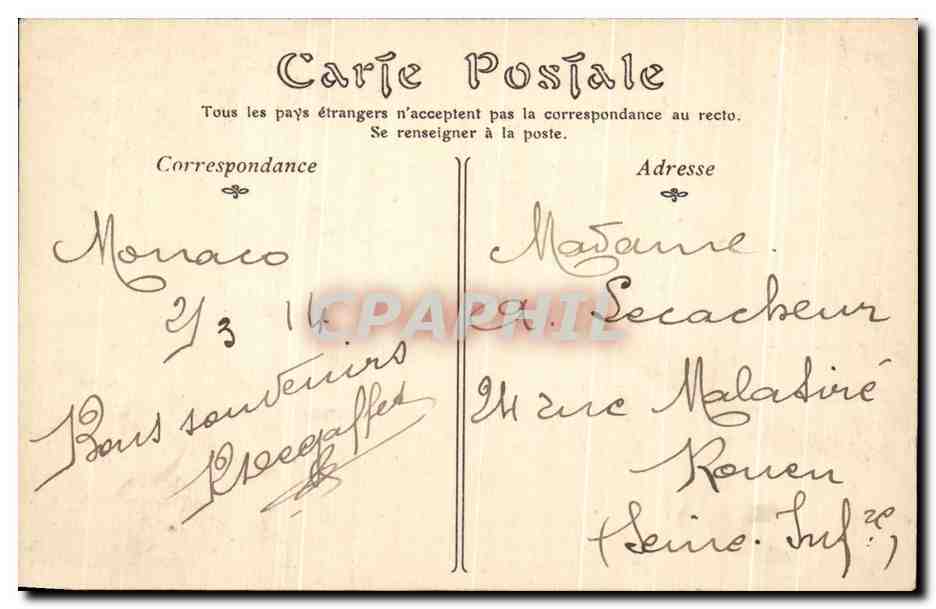 Carte Postale
Tous les pays étrangers n'acceptent pas la correspondance au recto.
Se renseigner à la poste.
Correspondance
Monaco
2/3 14
Bons souvenirs
Adresse
Madame
Lecacheur
24 rue Malatiré
Rouen
(Seine-Infre)
CPAPHIL